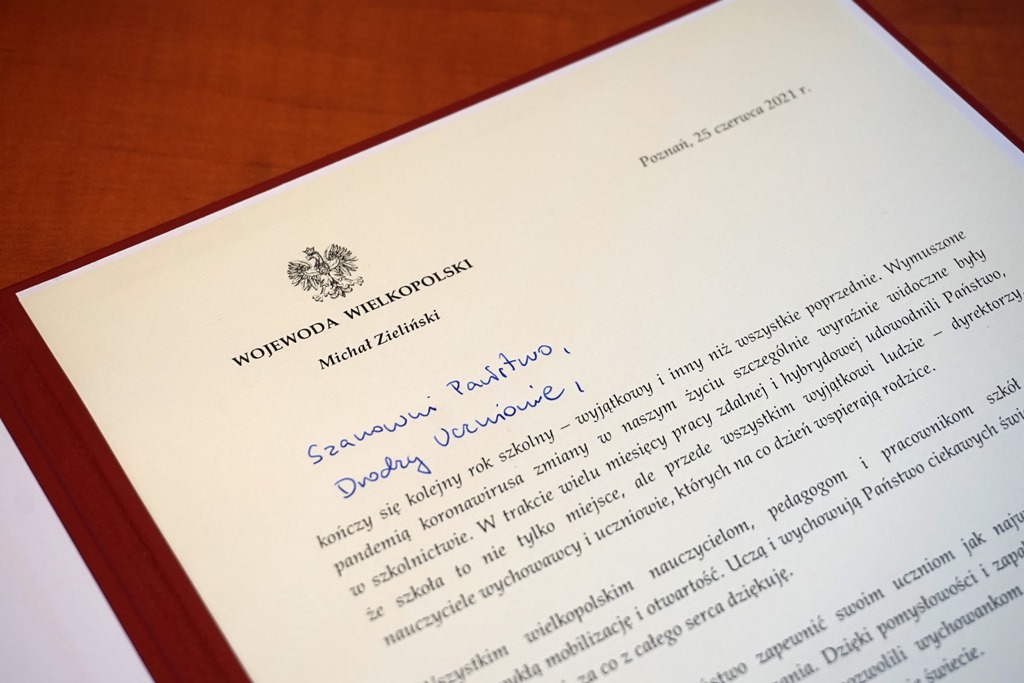 Poznań, 25 czerwca 2021 r.
WOJEWODA WIELKOPOLSKI
Michał Zieliński
Szanowni Państwo,
Drodzy Uczniowie,
kończy się kolejny rok szkolny – wyjątkowy i inny niż wszystkie poprzednie. Wymuszone
pandemią koronawirusa zmiany w naszym życiu szczególnie wyraźnie widoczne były
w szkolnictwie. W trakcie wielu miesięcy pracy zdalnej i hybrydowej udowodnili Państwo,
że szkoła to nie tylko miejsce, ale przede wszystkim wyjątkowi ludzie – dyrektorzy,
nauczyciele wychowawcy i uczniowie, których na co dzień wspierają rodzice.
Wszystkim wielkopolskim nauczycielom, pedagogom i pracownikom szkół
mobilizację i otwartość. Uczą i wychowują Państwo ciekawych
za co z całego serca dziękuję.
zapewnić swoim uczniom jak
Dzięki pomysłowości i
wychowankom
świecie.